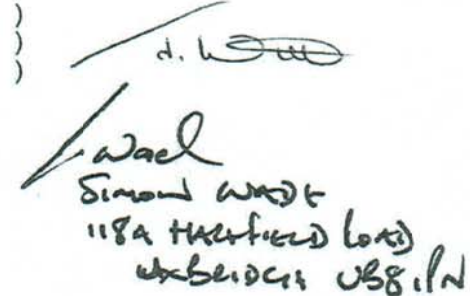 )
)
)
Wade
SIMON WADE
118A HAREFIELD ROAD
UXBRIDGE UB8 1PN